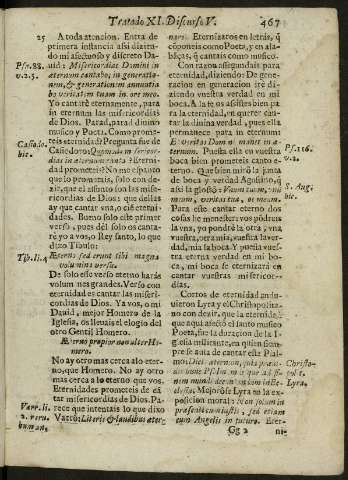 Tratado XI. Discurso V. 467
25 A toda atencion. Entra de
primera instancia assi dizien-
do mi afectuoso y discreto Da-
Psr. 88. uid: Misericordias Domini in
v.2.5. æternum cantabo, in generatio-
nem, & generationem annuntia
bo veritatem tuam in ore meo.
Yo cantaré eternamente, para
in eternum las misericordias
de Dios. Parad, parad diuino
musico y Poeta. Como prome-
teis eternidad? Pregunta fue de
Casiodoro: Quomodo in
dias in æternum cantat? Eterni-
dad prometeis? No me espanto
que lo prometais, solo con de-
zir, que el assunto son las mise-
ricordias de Dios: que dellas
ay que cantar vna, o cie eterni-
dades. Bueno solo este primer
verso, pues dél solo os canta-
ré yo a vos, o Rey santo, lo que
dixo Tibulo:
Tib. li. 4 Æterno sed erunt tibi magna
volumina versu.
De solo esse verso eterno harás
volumines grandes. Verso con
eternidad es cantar las miseri-
cordias de Dios. Ya vos, o mi
Dauid, mejor Homero de la
Iglesia, os lleuais el elogio del
otro Gentil Homero.
Æterno propior non alter Ho-
mero.
No ay otro mas cerca a lo eter-
no, que Homero. No ay otro
mas cerca a lo eterno que vos.
Eternidades prometeis de cá-
tar misericordias de Dios. Pa-
Varr. li. rece que intentais lo que dixo
2. reru. Varró: Literis & laudibus æter-
human.
Eternizaros en letras, q
cóponeis como Poeta, y en ala-
báças, q cantais como musico.
Con razon assegundais para
eternidad, diziendo: De gene-
racion en generacion iré di-
ziendo vuestra verdad en mi
boca. A la fe os assistes bien pa-
ra la eternidad, en querer can-
tar la diuina verdad, pues ella
permanece para in eternum:
Et veritas Domini manet in æ- Ps. 116.
ternum. Puesta ella en vuestra v.2.
boca bien prometeis canto e-
terno. Quien bien miró la junta
de boca y verdad Agustino, q
assi la glossò: Vacent tuum, S. Aug.
um, veritas tua, os meum. hic.
Para este cantar eterno dos
cosas he menester: vos pódreis
la vna, yo pondré la otra, vna
vuestra, otra mia, vuestra la ver-
dad, mia la boca. Y puesta vues-
tra eterna verdad en mi boca,
mi boca se eternizará en
cantar vuestras misericor-
dias.
Cortos de eternidad andu-
uieron Lyra y el Christapolita-
no con dezir, que la eternidad
que aqui afectó el santo musico
Poeta, fue la duracion de la I-
glesia militante, en quien siem-
pre se auia de cantar este Psal-
mo: Christo-
pol.
Lyra.
Mejorose Lyra en la ex-
posicion moral: Non solum in
præsenti cum iustis, sed etiam
cum Angelis in futuro. Eter-
Gg 2 ni-